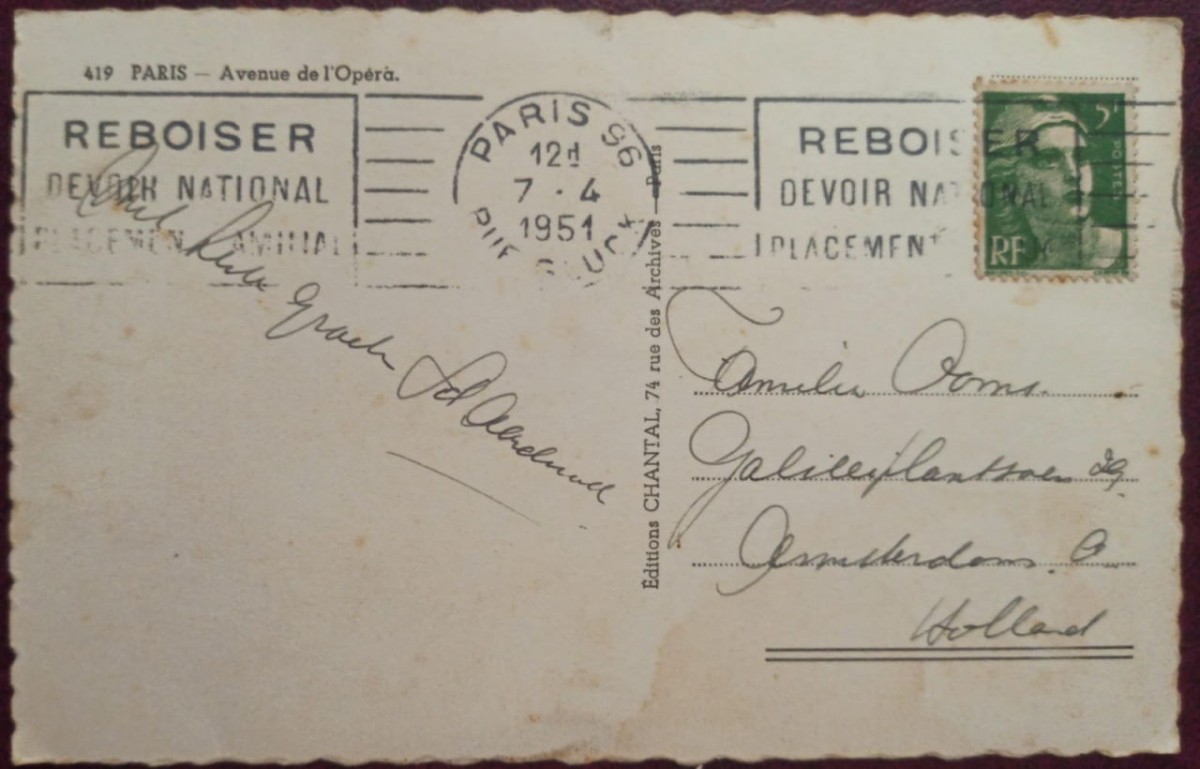 419 PARIS — Avenue de l'Opéra.
REBOISER
DEVOIR NATIONAL
PLACEMENT FAMILIAL
PARIS 96
12d
7 · 4
1951
RUE GLUCK
REBOISER
DEVOIR NATIONAL
PLACEMENT
5F
POSTES
RF
Éditions CHANTAL, 74 rue des Archives - Paris
Familie Ooms.
Galileïplantsoen
Amsterdam. O
Holland